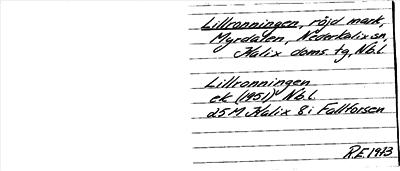 Lillronningen, röjd mark,
Myrdalen, Nederkalix sn,
Kalix doms. tg, Nb.l
Lillronningen
ek (1951) Nb.l
25M Kalix 8i Fallforsen
R.E. 1973